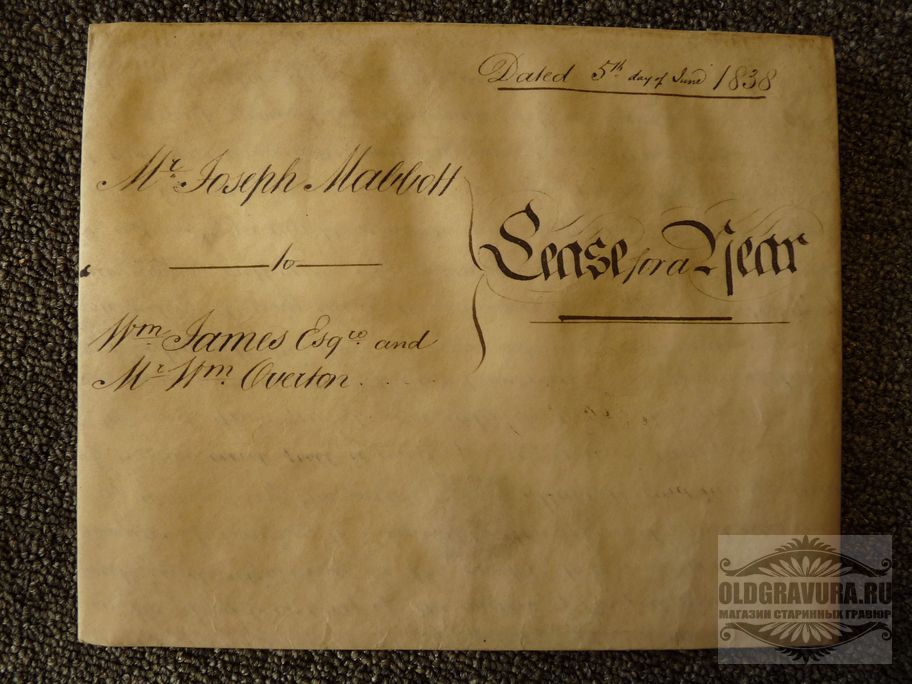 Dated 5th day of June 1838
Mr. Joseph Mabbott
to
Wm. James Esqre. and
Mr. Wm. Overton
Lease for a Year
OLDGRAVURA.RU
МАГАЗИН СТАРИННЫХ ГРАВЮР